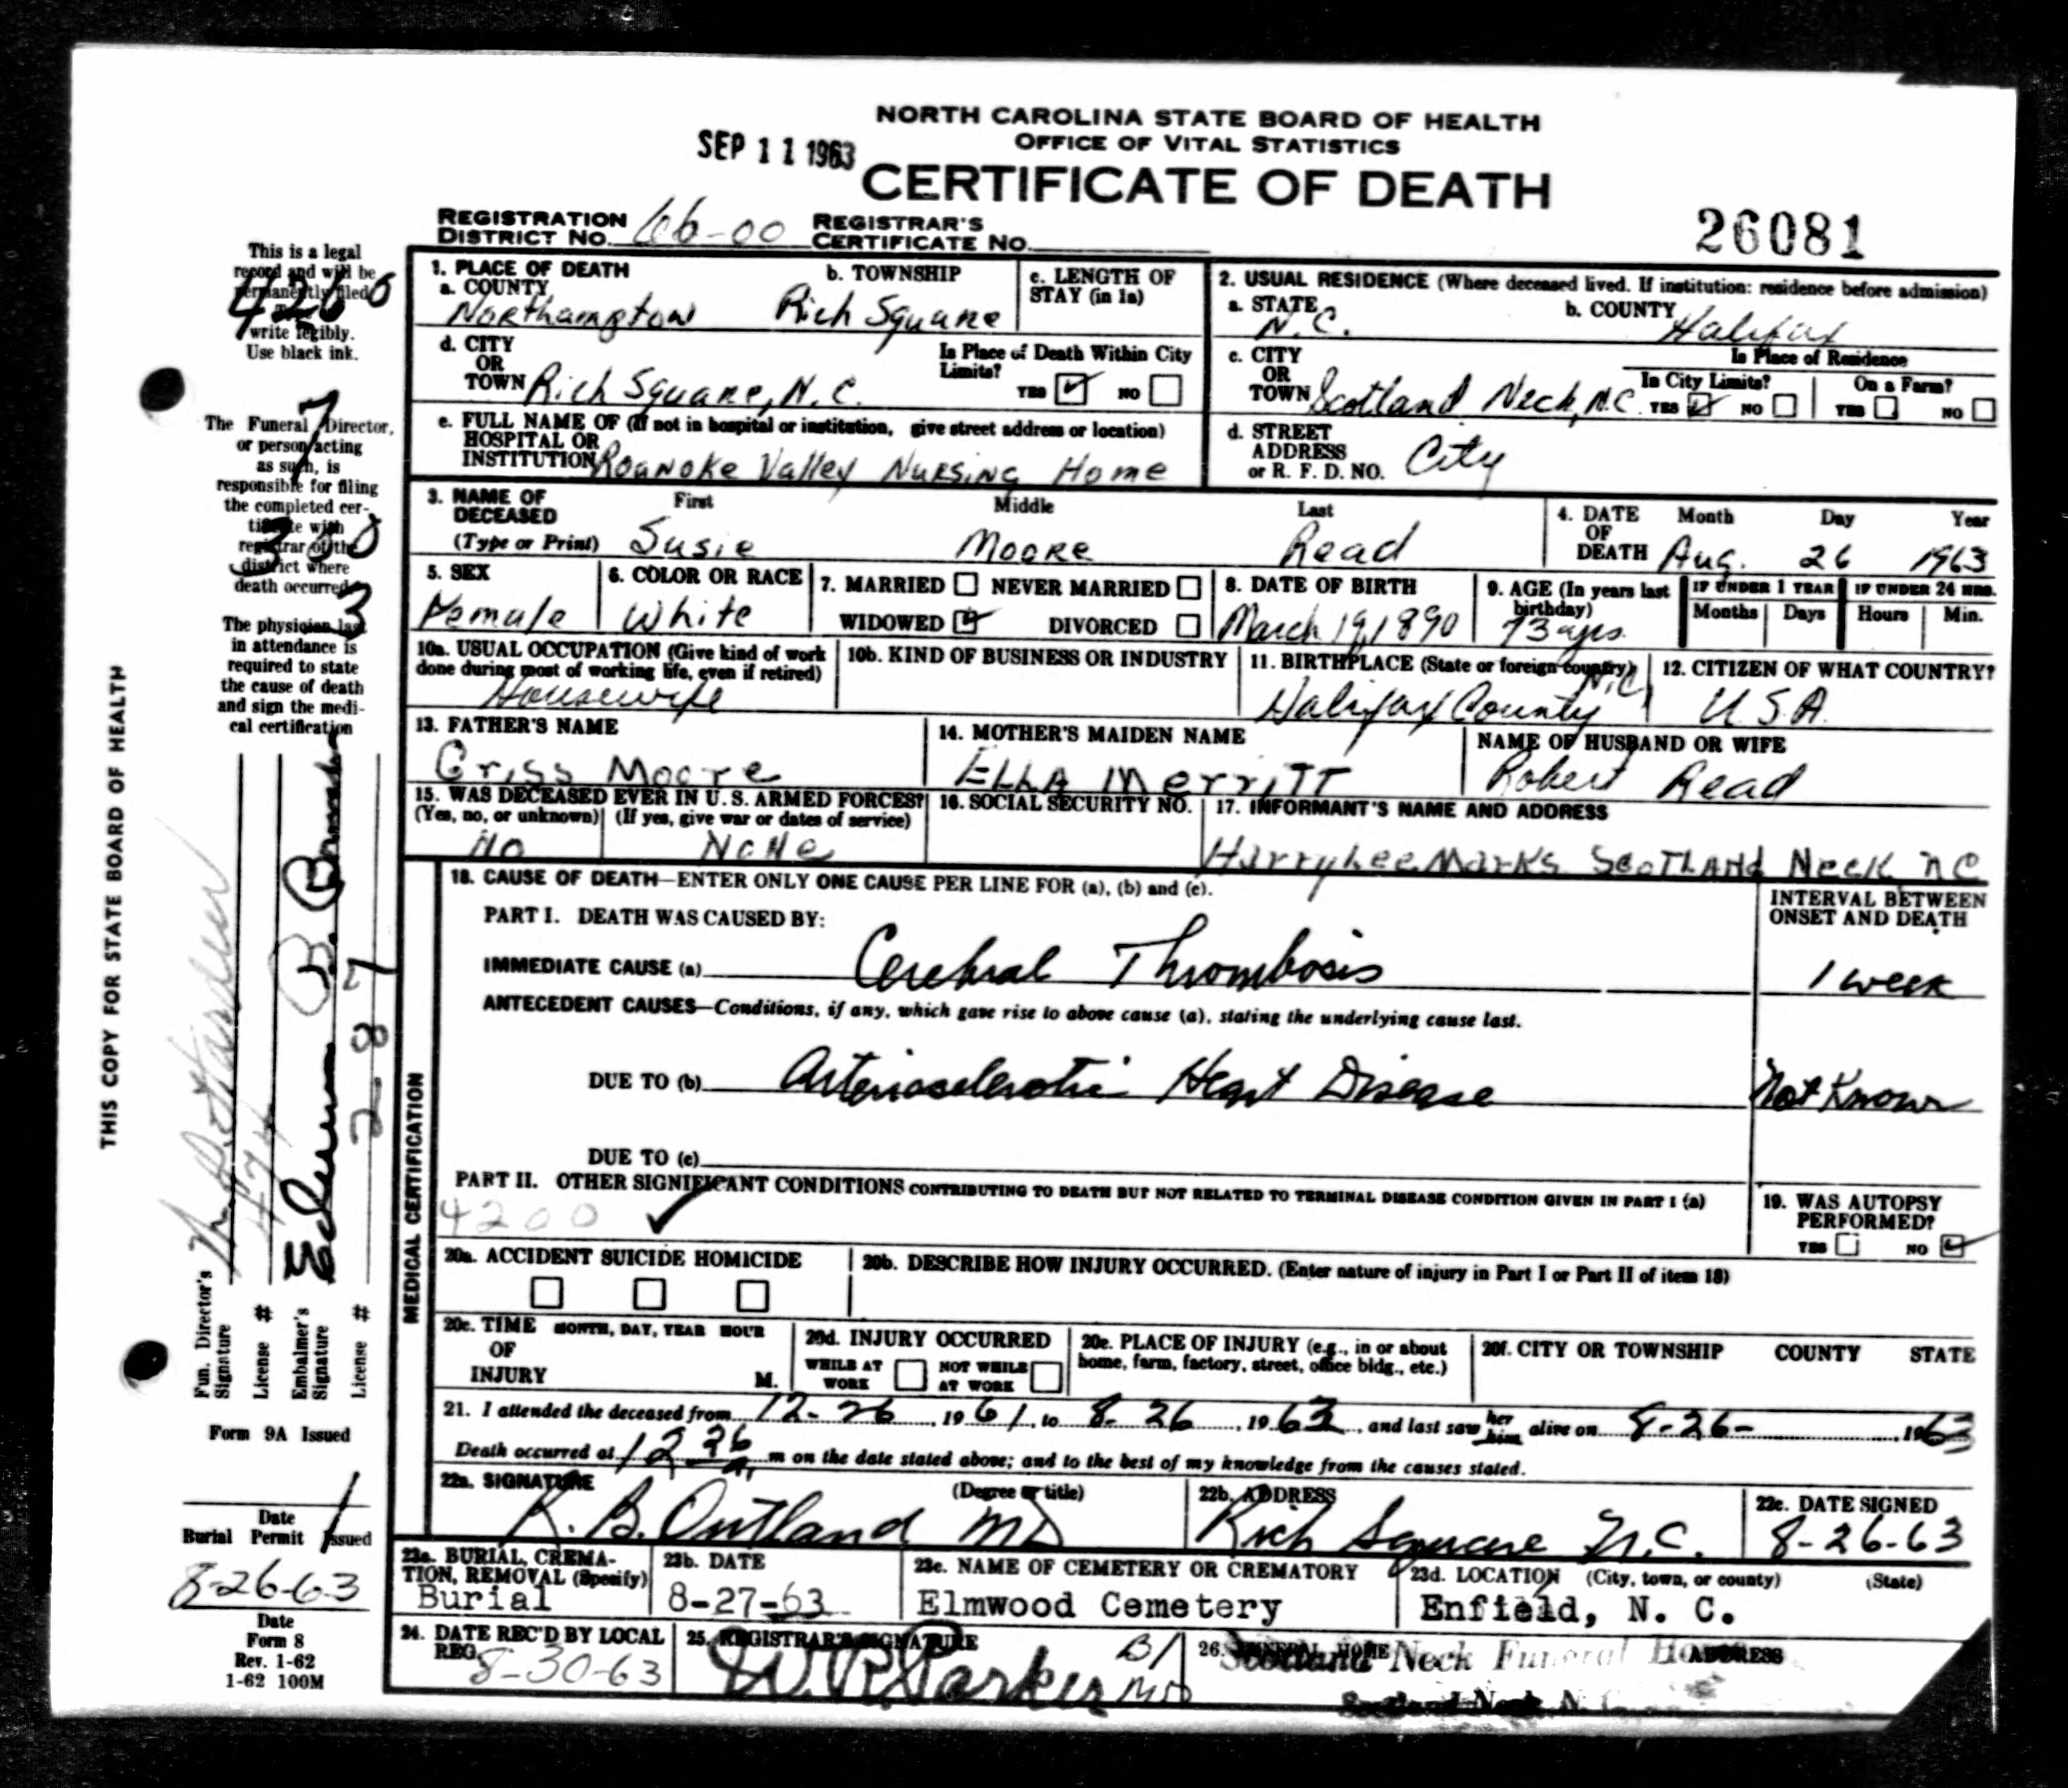 NORTH CAROLINA STATE BOARD OF HEALTH
OFFICE OF VITAL STATISTICS
SEP 11 1963
CERTIFICATE OF DEATH
REGISTRATION DISTRICT NO. 66-00 REGISTRAR'S CERTIFICATE NO.
26081
1. PLACE OF DEATH
a. COUNTY Northampton
b. TOWNSHIP Rich Square
c. LENGTH OF STAY (in 1a)
2. USUAL RESIDENCE (Where deceased lived. If institution: residence before admission)
a. STATE N.C.
b. COUNTY Halifax
d. CITY OR TOWN Rich Square, N.C.
Is Place of Death Within City Limits? YES ✓ NO
c. CITY OR TOWN Scotland Neck, N.C.
Is Place of Residence
In City Limits? YES ✓ NO
On a Farm? YES NO
e. FULL NAME OF (If not in hospital or institution, give street address or location)
HOSPITAL OR
INSTITUTION Roanoke Valley Nursing Home
d. STREET ADDRESS or R. F. D. NO. City
3. NAME OF DECEASED (Type or Print)
First Susie
Middle Moore
Last Read
4. DATE OF DEATH
Month Day Year
Aug. 26 1963
5. SEX Female
6. COLOR OR RACE White
7. MARRIED NEVER MARRIED
WIDOWED ✓ DIVORCED
8. DATE OF BIRTH March 19, 1890
9. AGE (In years last birthday) 73 yrs.
IF UNDER 1 YEAR Months Days
IF UNDER 24 HRS. Hours Min.
10a. USUAL OCCUPATION (Give kind of work done during most of working life, even if retired)
Housewife
10b. KIND OF BUSINESS OR INDUSTRY
11. BIRTHPLACE (State or foreign country)
Halifax County N.C.
12. CITIZEN OF WHAT COUNTRY?
U.S.A.
13. FATHER'S NAME
Criss Moore
14. MOTHER'S MAIDEN NAME
Ella Merritt
NAME OF HUSBAND OR WIFE
Robert Read
15. WAS DECEASED EVER IN U. S. ARMED FORCES?
(Yes, no, or unknown) (If yes, give war or dates of service)
No None
16. SOCIAL SECURITY NO.
17. INFORMANT'S NAME AND ADDRESS
Harry Lee Marks Scotland Neck NC
MEDICAL CERTIFICATION
18. CAUSE OF DEATH—ENTER ONLY ONE CAUSE PER LINE FOR (a), (b) and (c).
INTERVAL BETWEEN ONSET AND DEATH
PART I. DEATH WAS CAUSED BY:
IMMEDIATE CAUSE (a) Cerebral Thrombosis 1 week
ANTECEDENT CAUSES—Conditions, if any, which gave rise to above cause (a), stating the underlying cause last.
DUE TO (b) Arteriosclerotic Heart Disease Not Known
DUE TO (c)
PART II. OTHER SIGNIFICANT CONDITIONS CONTRIBUTING TO DEATH BUT NOT RELATED TO TERMINAL DISEASE CONDITION GIVEN IN PART I (a)
4200 ✓
19. WAS AUTOPSY PERFORMED?
YES NO ✓
20a. ACCIDENT SUICIDE HOMICIDE
20b. DESCRIBE HOW INJURY OCCURRED. (Enter nature of injury in Part I or Part II of item 18)
20c. TIME OF INJURY MONTH, DAY, YEAR HOUR M.
20d. INJURY OCCURRED
WHILE AT WORK NOT WHILE AT WORK
20e. PLACE OF INJURY (e.g., in or about home, farm, factory, street, office bldg., etc.)
20f. CITY OR TOWNSHIP COUNTY STATE
21. I attended the deceased from 12-26, 1961, to 8-26, 1963, and last saw her him alive on 8-26- 1963
Death occurred at 12 m on the date stated above; and to the best of my knowledge from the causes stated.
22a. SIGNATURE (Degree or title)
R. B. Outland MD
22b. ADDRESS
Rich Square N.C.
22c. DATE SIGNED
8-26-63
23a. BURIAL, CREMATION, REMOVAL (Specify)
Burial
23b. DATE
8-27-63
23c. NAME OF CEMETERY OR CREMATORY
Elmwood Cemetery
23d. LOCATION (City, town, or county) (State)
Enfield, N. C.
24. DATE REC'D BY LOCAL REG.
8-30-63
25. REGISTRAR'S SIGNATURE
W. R. Parker MD
26. FUNERAL HOME ADDRESS
Scotland Neck Funeral Home
Scotland Neck, N.C.
This is a legal
record and will be
permanently filed
write legibly.
Use black ink.
The Funeral Director,
or person acting
as such, is
responsible for filing
the completed cer-
tificate with
registrar of the
district where
death occurred
The physician last
in attendance is
required to state
the cause of death
and sign the medi-
cal certification
THIS COPY FOR STATE BOARD OF HEALTH
Fun. Director's Signature
License # 474
Embalmer's Signature
License # 287
Form 9A Issued
Date
Burial Permit Issued
8-26-63
Date
Form 8
Rev. 1-62
1-62 100M